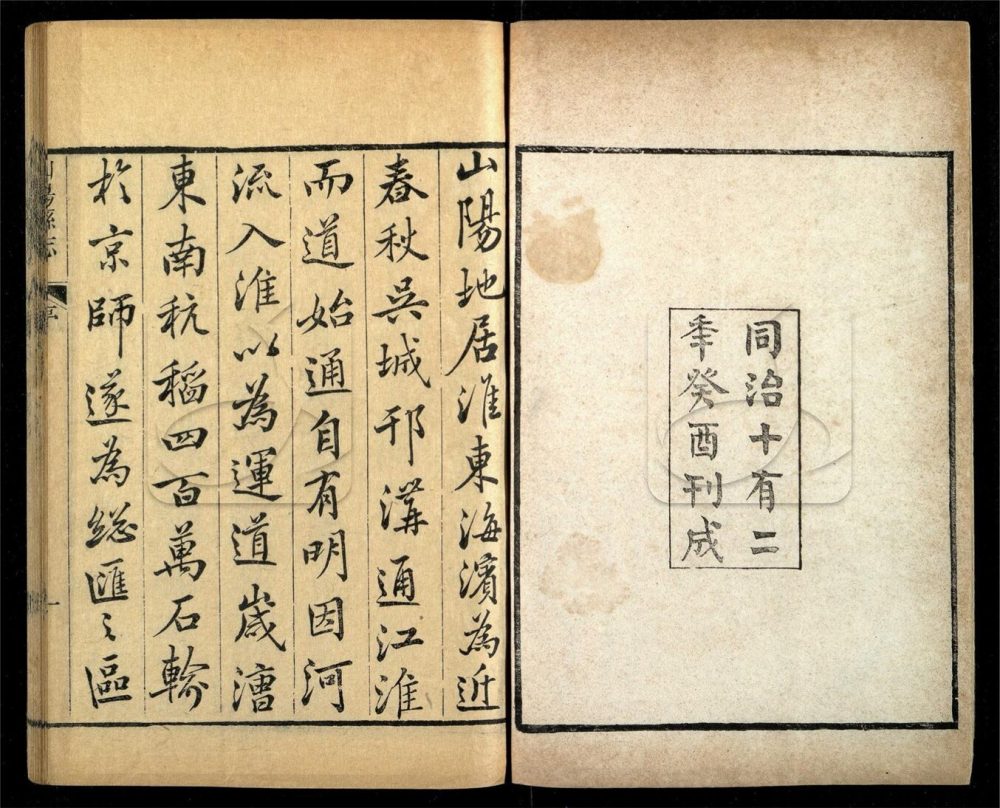 同治十有二
年癸酉刊成
山陽地居淮東海濱為近
春秋吳城邗溝通江淮
而道始通自有明因河
流入淮以為運道歲漕
東南秔稻四百萬石輸
於京師遂為總匯之區
山陽縣志
序
一